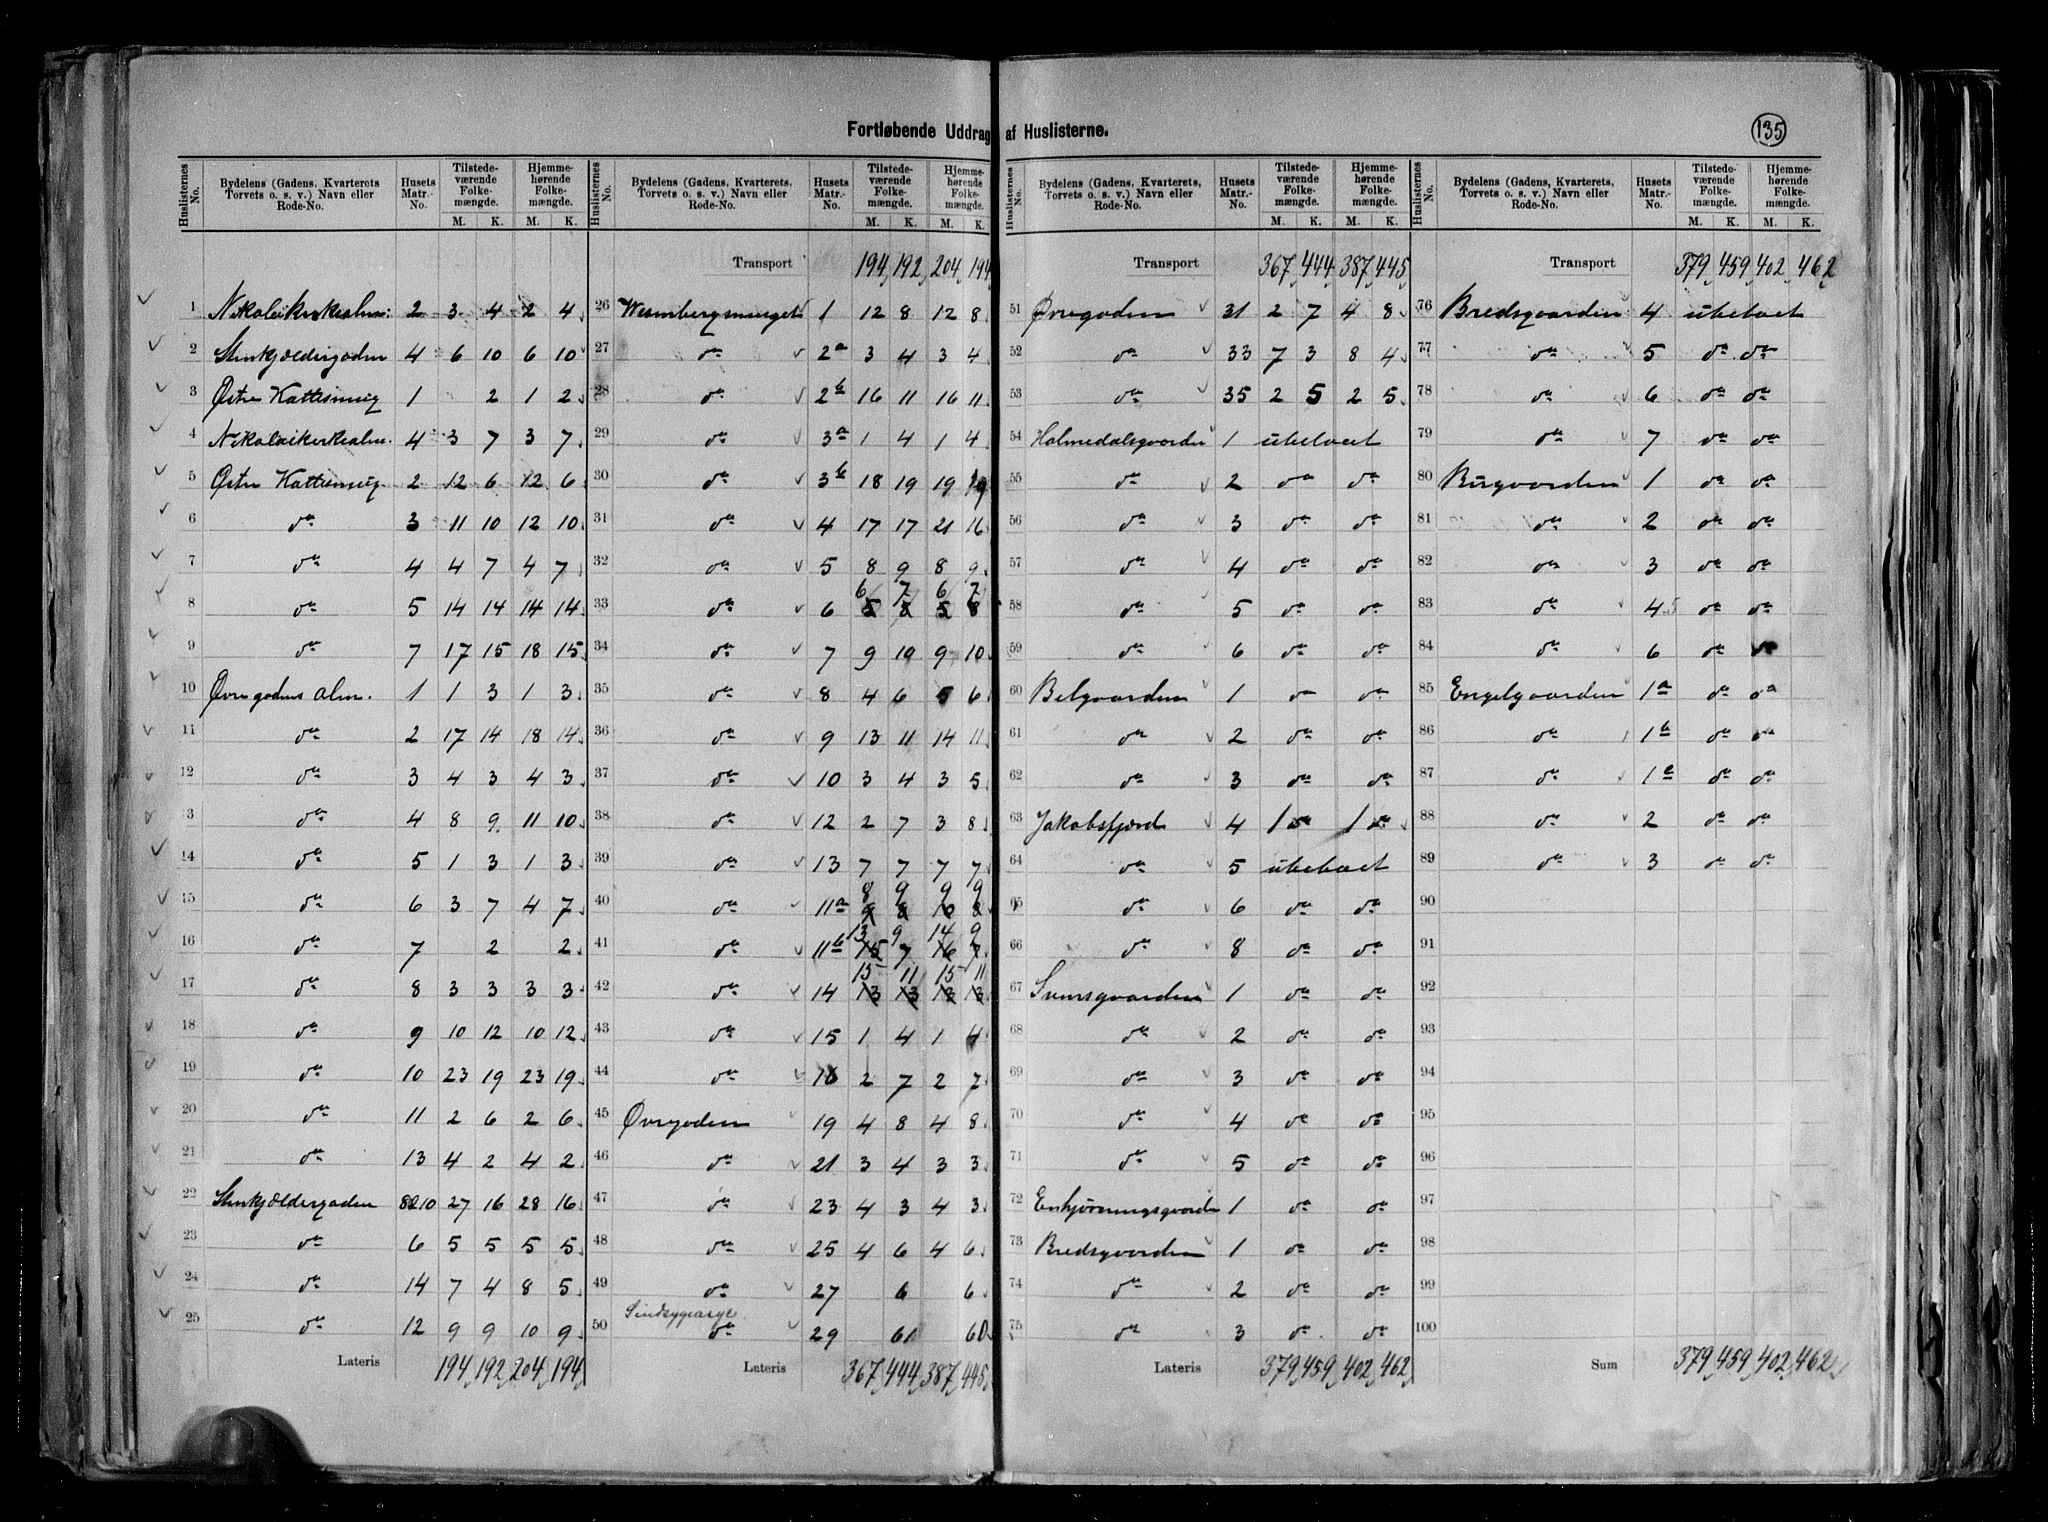 Fortløbende Uddrag af Huslisterne.
135
Huslisternes No. Bydelens (Gadens, Kvarterets, Torvets o. s. v.) Navn eller Rode-No. Husets Matr.-No. Tilstedeværende Folkemængde. M. K. Hjemmehørende Folkemængde. M. K.
1 Nikolaikirkealm: 2 3 4 2 4
2 Stenkjældergaden 4 6 10 6 10
3 Østre Kattesmug 1 2 1 2
4 Nikolaikirkealm. 4 3 7 3 7
5 Østre Kattesmug 2 12 6 12 6
6 do 3 11 10 12 10
7 do 4 4 7 4 7
8 do 5 14 14 14 14
9 do 7 17 15 18 15
10 Øvregadens alm. 1 1 3 1 3
11 do 2 17 14 18 14
12 do 3 4 3 4 3
13 do 4 8 9 11 10
14 do 5 1 3 1 3
15 do 6 3 7 4 7
16 do 7 2 2
17 do 8 3 3 3 3
18 do 9 10 12 10 12
19 do 10 23 19 23 19
20 do 11 2 6 2 6
21 do 13 4 2 4 2
22 Stenkjældergaden 8&10 27 16 28 16
23 do 6 5 5 5 5
24 do 14 7 4 8 5
25 do 12 9 9 10 9
Lateris 194 192 204 194
Huslisternes No. Bydelens (Gadens, Kvarterets, Torvets o. s. v.) Navn eller Rode-No. Husets Matr.-No. Tilstedeværende Folkemængde. M. K. Hjemmehørende Folkemængde. M. K.
Transport 194 192 204 194
26 Wesenbergsmuget 1 12 8 12 8
27 do 2a 3 4 3 4
28 do 2b 16 11 16 11
29 do 3a 1 4 1 4
30 do 3b 18 19 19 19
31 do 4 17 17 21 16
32 do 5 8 9 8 9
6 7 6 7
33 do 6 5 8 5 8
34 do 7 9 10 9 10
35 do 8 4 6 5 6
36 do 9 13 11 14 11
37 do 10 3 4 3 5
38 do 12 2 7 3 8
39 do 13 7 7 7 7
8 9 9 9
40 do 11a 9 8 10 8
13 9 14 9
41 do 11b 15 7 16 7
15 11 15 11
42 do 14 13 13 13 13
43 do 15 1 4 1 4
44 do 16 2 7 2 7
45 Øvregaden 19 4 8 4 8
46 do 21 3 4 3 3
47 do 23 4 3 4 3
48 do 25 4 6 4 6
49 do 27 6 6
Sindsygeasyl
50 do 29 61 60
Lateris 367 444 387 445
Huslisternes No. Bydelens (Gadens, Kvarterets, Torvets o. s. v.) Navn eller Rode-No. Husets Matr.-No. Tilstedeværende Folkemængde. M. K. Hjemmehørende Folkemængde. M. K.
Transport 367 444 387 445
51 Øvregaden 31 2 7 4 8
52 do 33 7 3 8 4
53 do 35 2 5 2 5
54 Holmedalsgaarden 1 ubeboet
55 do 2 do do
56 do 3 do do
57 do 4 do do
58 do 5 do do
59 do 6 do do
60 Belgaarden 1 do do
61 do 2 do do
62 do 3 do do
63 Jakobsfjord 4 1 do 1 do
64 do 5 ubeboet
65 do 6 do do
66 do 8 do do
67 Svensgaarden 1 do do
68 do 2 do do
69 do 3 do do
70 do 4 do do
71 do 5 do do
72 Enhjørningsgaarden 1 do do
73 Bredsgaarden 1 do do
74 do 2 do do
75 do 3 do do
Lateris 379 459 402 462
Huslisternes No. Bydelens (Gadens, Kvarterets, Torvets o. s. v.) Navn eller Rode-No. Husets Matr.-No. Tilstedeværende Folkemængde. M. K. Hjemmehørende Folkemængde. M. K.
Transport 379 459 402 462
76 Bredsgaarden 4 ubeboet
77 do 5 do do
78 do 6 do do
79 do 7 do do
80 Bugaarden 1 do do
81 do 2 do do
82 do 3 do do
83 do 4 5 do do
84 do 6 do do
85 Engelgaarden 1a do do
86 do 1b do do
87 do 1c do do
88 do 2 do do
89 do 3 do do
90
91
92
93
94
95
96
97
98
99
100
Sum 379 459 402 462